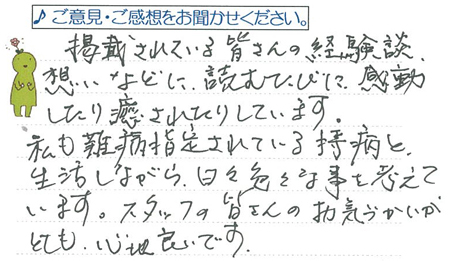 ♪ご意見・ご感想をお聞かせください。
掲載されている皆さんの経験談、
想いなどに、読むたびに感動
したり癒されたりしています。
私も難病指定されている持病と、
生活しながら、日々色々な事を考えて
います。スタッフの皆さんのお気づかいが
とても、心地良いです。